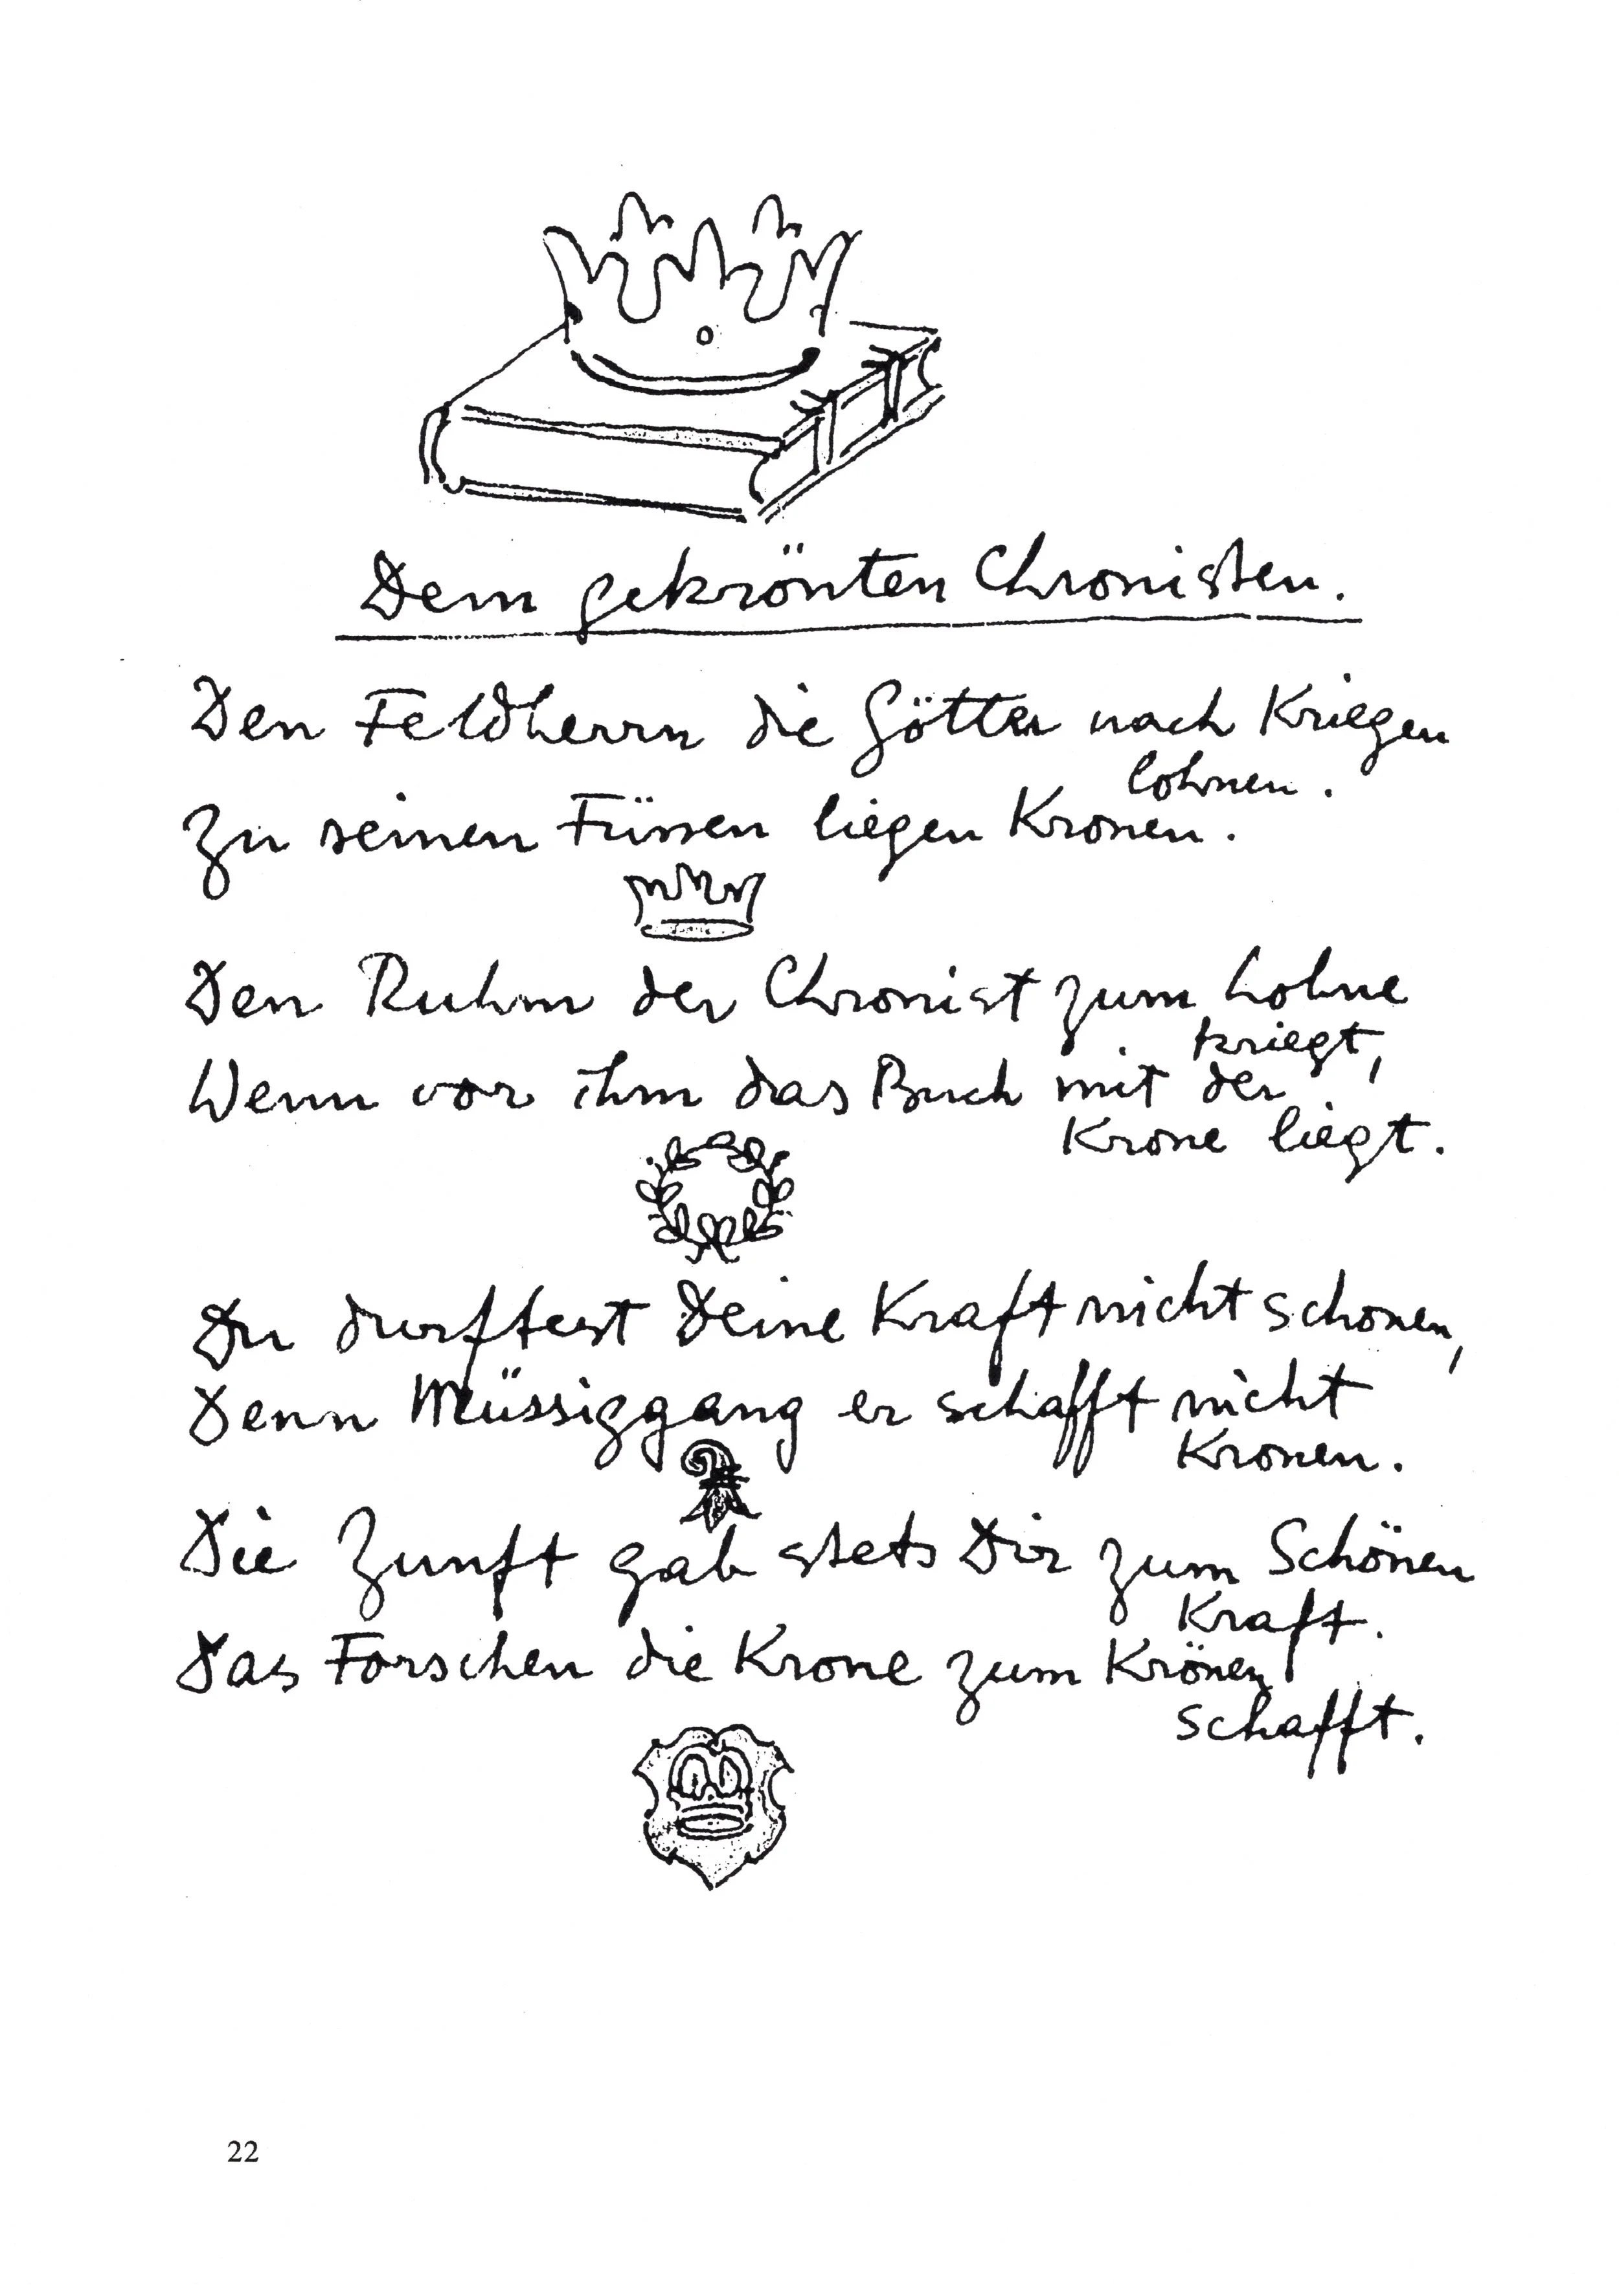 Dem gekrönten Chronisten.
Den Feldherrn die Götter nach Kriegen
lohnen.
Zu seinen Füssen liegen Kronen.
Den Ruhm der Chronist zum Lohne
kriegt,
Wenn vor ihm das Buch mit der
Krone liegt.
Du durftest Deine Kraft nicht schonen,
Denn Müssiggang er schafft nicht
Kronen.
Die Zunft gab stets Dir zum Schönen
Kraft.
Das Forschen die Krone zum Krönen
schafft.
22